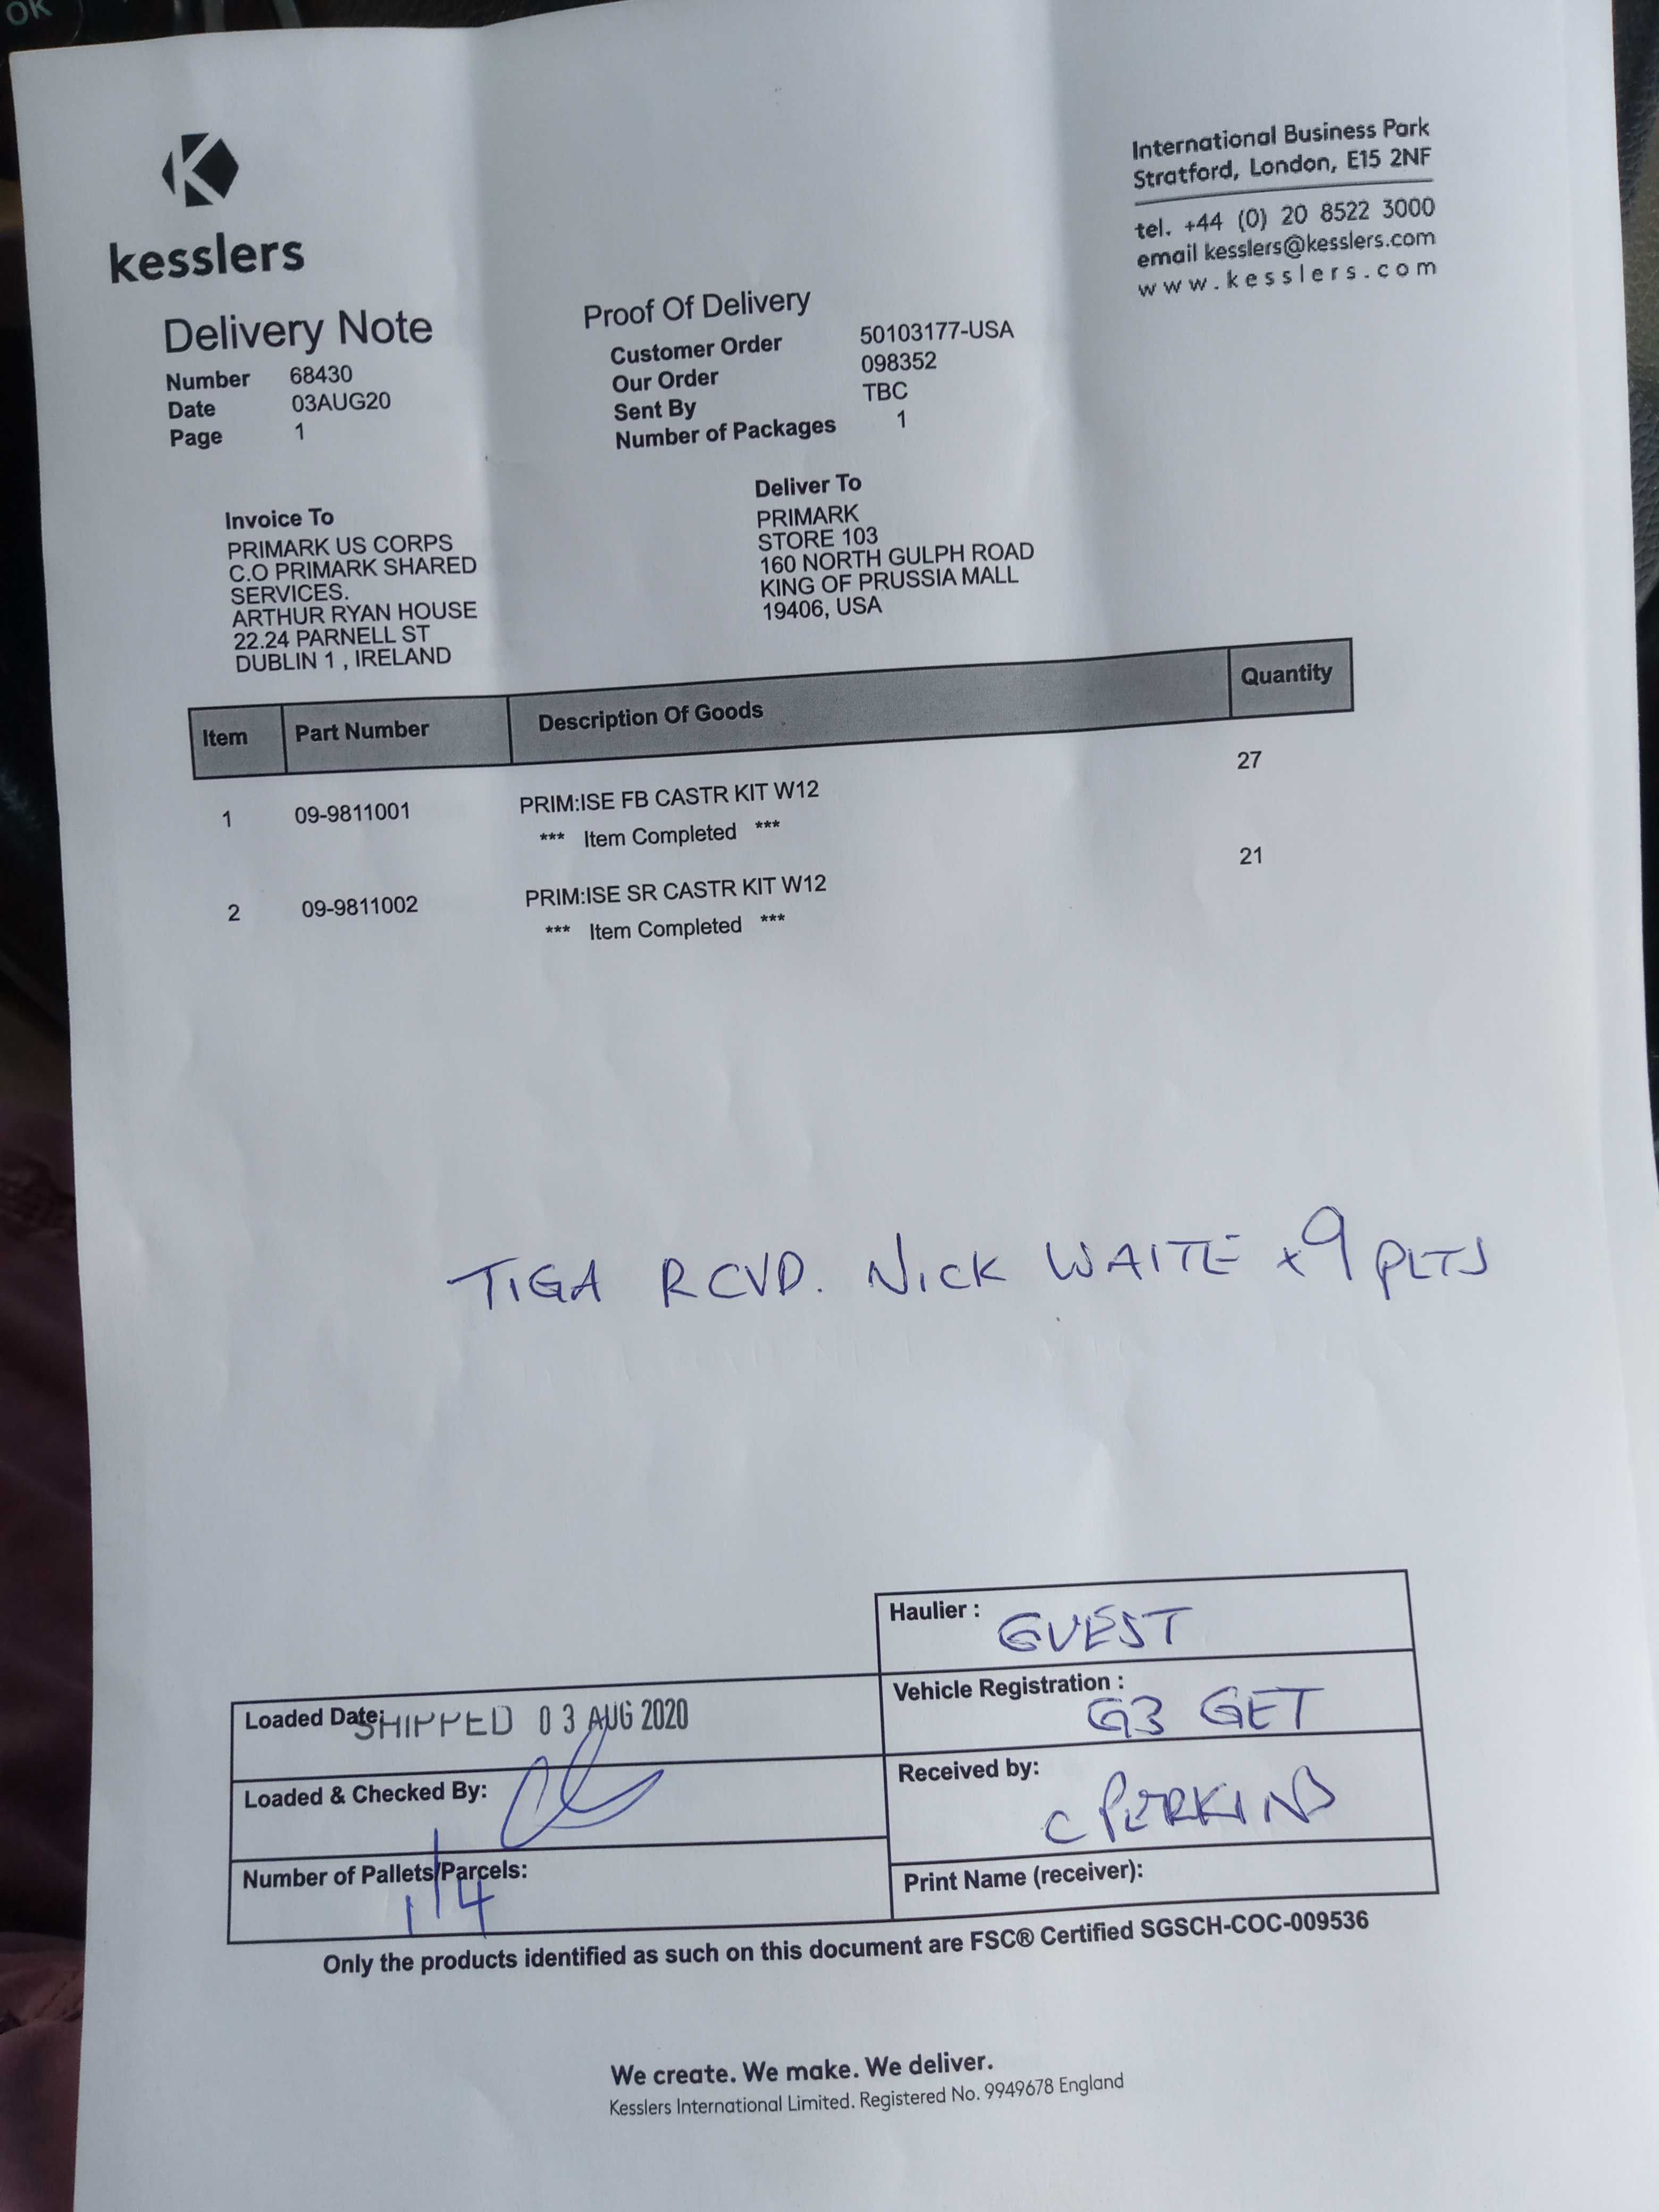 OK
kesslers
International Business Park
Stratford, London, E15 2NF
tel. +44 (0) 20 8522 3000
email kesslers@kesslers.com
www.kesslers.com
Delivery Note
Number 68430
Date 03AUG20
Page 1
Proof Of Delivery
Customer Order 50103177-USA
Our Order 098352
Sent By TBC
Number of Packages 1
Invoice To
PRIMARK US CORPS
C.O PRIMARK SHARED
SERVICES.
ARTHUR RYAN HOUSE
22.24 PARNELL ST
DUBLIN 1 , IRELAND
Deliver To
PRIMARK
STORE 103
160 NORTH GULPH ROAD
KING OF PRUSSIA MALL
19406, USA
Item Part Number Description Of Goods Quantity
1 09-9811001 PRIM:ISE FB CASTR KIT W12 27
*** Item Completed ***
2 09-9811002 PRIM:ISE SR CASTR KIT W12 21
*** Item Completed ***
TIGA RCVD. NICK WAITE x9 PLTS
Haulier : GUEST
Vehicle Registration : G3 GET
Received by: C PERKINS
Print Name (receiver):
Loaded Date: SHIPPED 03 AUG 2020
Loaded & Checked By:
Number of Pallets/Parcels:
1/4
Only the products identified as such on this document are FSC® Certified SGSCH-COC-009536
We create. We make. We deliver.
Kesslers International Limited. Registered No. 9949678 England